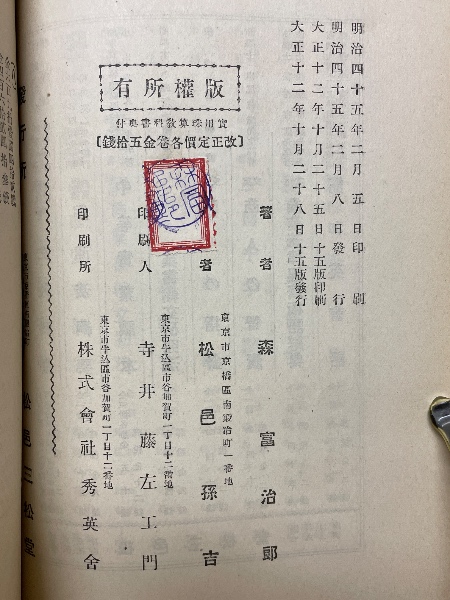 明治四十五年二月五日印刷
明治四十五年二月八日發行
大正十二年十月二十五日十五版印刷
大正十二年十月二十八日十五版發行
版權所有
實用珠算教科書奧付
〔改正定價各卷金五拾錢〕
著者 森富治郎
東京市京橋區南鍛冶町一番地
者 松邑孫吉
東京市牛込區市谷加賀町一丁目十二番地
印刷人 寺井藤左工門
東京市牛込區市谷加賀町一丁目十二番地
印刷所 株式會社秀英舍
發行所 松邑三松堂